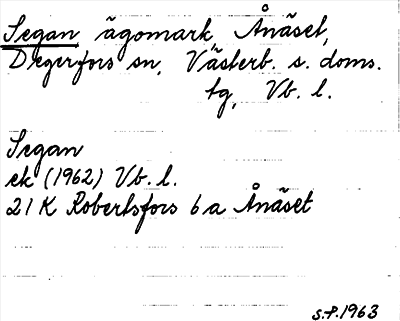 Segan ägomark Ånäset,
Degerfors sn, Västerb. s. doms.
tg, Vb. l.
Segan
ek (1962) Vb. l.
21 K Robertsfors 6 a Ånäset
s.f.1963